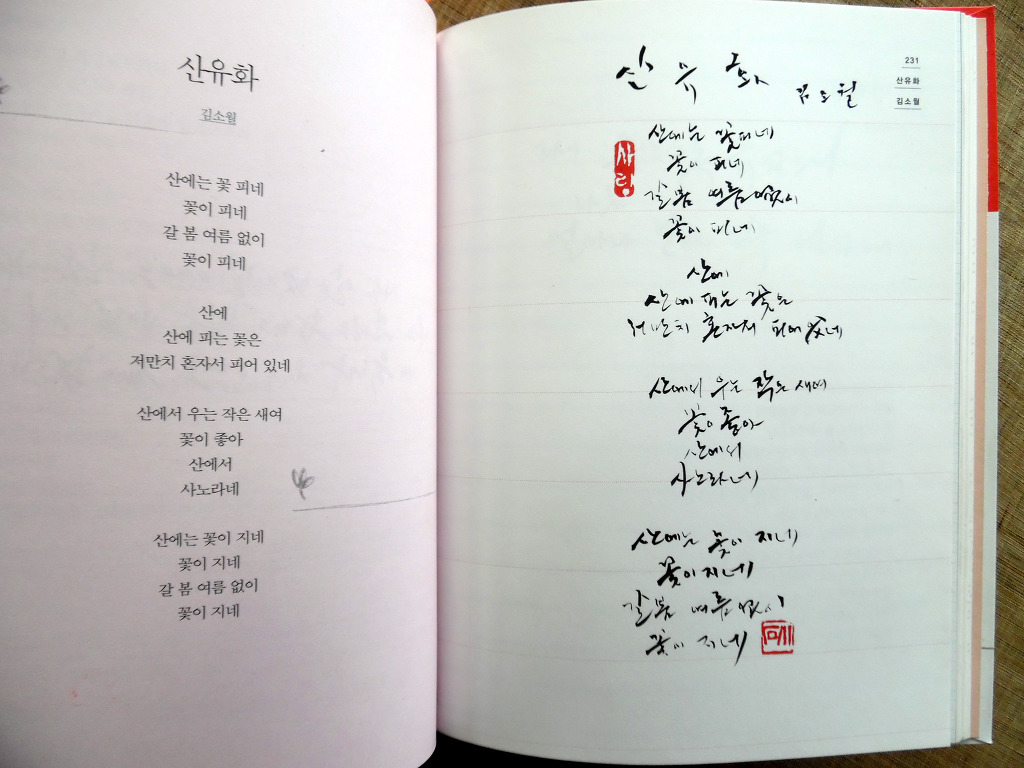 산유화
김소월
산에는 꽃 피네
꽃이 피네
갈 봄 여름 없이
꽃이 피네
산에
산에 피는 꽃은
저만치 혼자서 피어 있네
산에서 우는 작은 새여
꽃이 좋아
산에서
사노라네
산에는 꽃이 지네
꽃이 지네
갈 봄 여름 없이
꽃이 지네
231
산유화
김소월
산유화 김소월
산에는 꽃피네
꽃이 피네
갈 봄 여름 없이
꽃이 피네
산에
산에 피는 꽃은
저만치 혼자서 피어 있네
산에서 우는 작은 새여
꽃이 좋아
산에서
사노라네
산에는 꽃이 지네
꽃이 지네
갈 봄 여름 없이
꽃이 지네
사랑